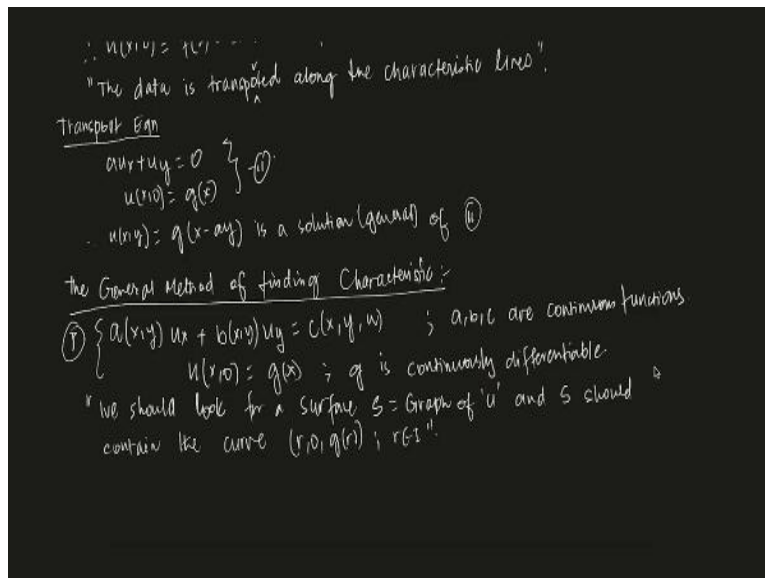 ∴ u(x,0) =
"The data is transported along the characteristic lines".
Transport Eqn
aux + uy = 0
u(x,0) = g(x) } - (ii)
∴ u(x,y) = g(x-ay) is a solution (general) of (ii)
The General Method of finding Characteristic :-
(I) { a(x,y) ux + b(x,y) uy = c(x,y,u) ; a,b,c are continuous functions.
u(x,0) = g(x) ; g is continuously differentiable.
" We should look for a surface S = Graph of 'u' and S should
contain the curve (r,0,g(r)) ; r∈I ".